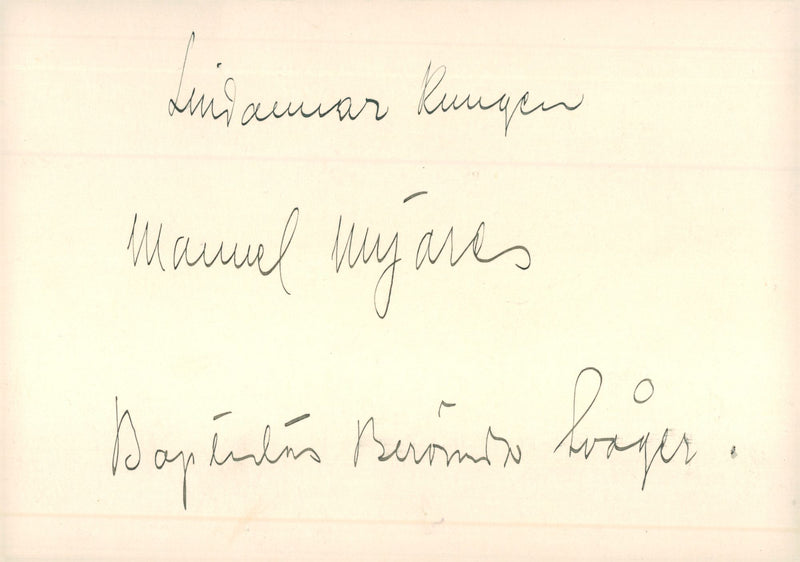 Lindamar Rungen
Manuel Mijares
Baptistas Berömda Svåger.